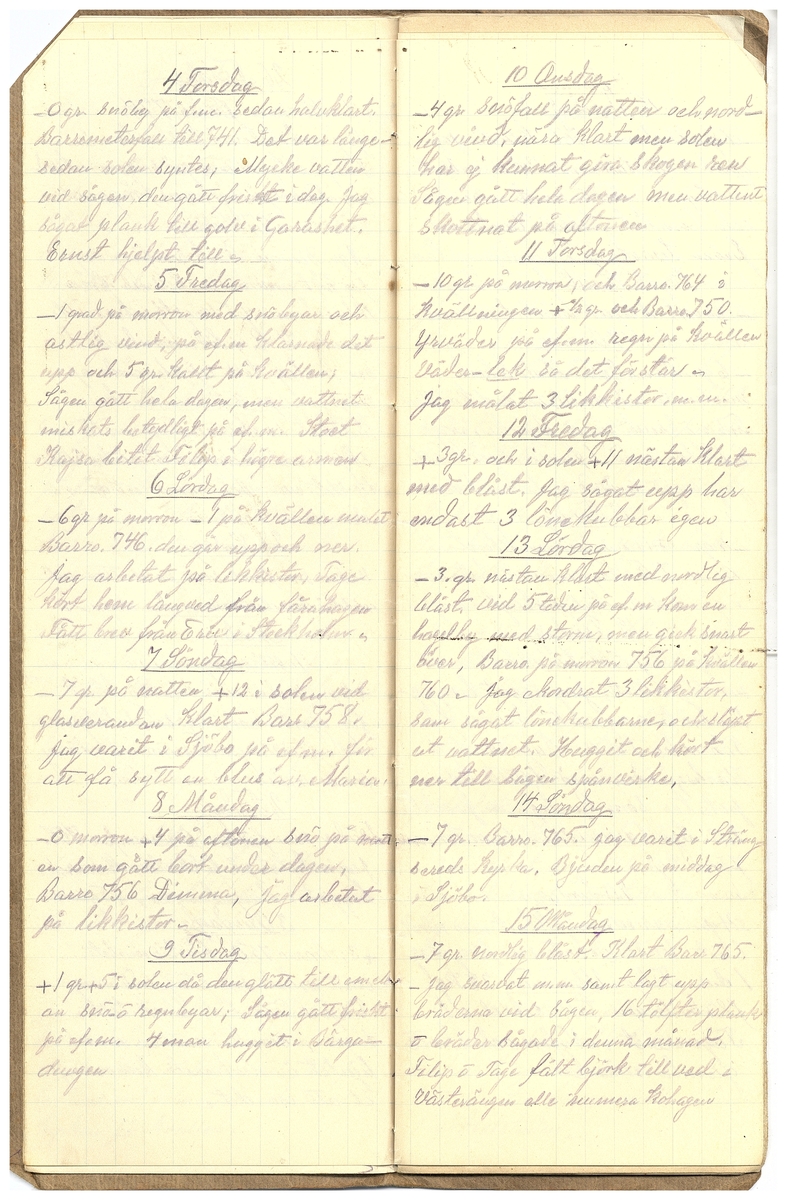 4 Torsdag
-0 gr. snöby på f.m. sedan halvklart.
Barrometerfall till 741. Det var länge-
sedan solen syntes, Mycke vatten
vid sågen, den gått friskt i dag. Jag
sågat plank till golv i Garashet.
Ernst hjelpt till
5 Fredag
-1 grad på morron med snöbyar och
ostlig vind, på ef.m klarnade det
upp och 5 gr. kallt på kvällen;
Sågen gått hela dagen, men vattnet
minskats betydligt på ef.m. Stoet
Kajsa bitet Filip i högre armen
6 Lördag
-6 gr på morron -1 på kvällen mulet
Barro. 746. den går upp och ner.
Jag arbetat på likkistor, Tage
kört hem långved från
Fått brev från i Stockholm
7 Söndag
-7 gr. på natten +12 i solen vid
glasverandan Klart Barr 758.
Jag varit i Sjöbo på ef.m. för
att få sytt en blus av Maria.
8 Måndag
-0 morron +4 på eftonen snö på natt-
en som gått bort under dagen,
Barro 756 Dimma, jag arbetat
på likkistor
9 Tisdag
+1 gr +5 i solen då den glått till emell-
an snö-o regnbyar; Sågen gått friskt
på ef.m. 4 man huggit i Bärga-
dungen
10 Onsdag
-4 gr. snöfall på natten och nord-
lig vind, nära klart men solen
har ej kunnat göra skogen ren
Sågen gått hela dagen men vattent
skottnat på aftonen
11 Torsdag
-10 gr. på morron, och Barro. 764 i
kvällningen +1/2 gr. och Barro 750.
Yrväder på ef.m. regn på kvällen
väder-lek så det förslår
Jag målat 3 likkistor, m.m.
12 Fredag
+3 gr. och i solen +11 nästan klart
med blåst. Jag sågat upp har
endast 3 lönekubbar igen
13 Lördag
-3. gr. nästan klart med nordlig
blåst, vid 5 tiden på ef.m kom en
med storm, men gick snart
över, Barro. på morron 756 på kvällen
760. jag 3 likkistor,
sam sågat lönekubbarne, och släpt
ut vattnet. Huggit och kört
ner till sågen spånvirke,
14 Söndag
-7 gr. Barro. 765. jag varit i Sträng
sereds kyrka, Bjuden på middag
i Sjöbo.
15 Måndag
-7 gr. nordlig blåst. Klart Barr 765.
- jag svarvat m.m. samt lagt upp
bräderna vid sågen, 16 tolfter plank
o bräder sågade i denna månad.
Filip o Tage fält björk till ved i
Västerängen alle numera kohagen